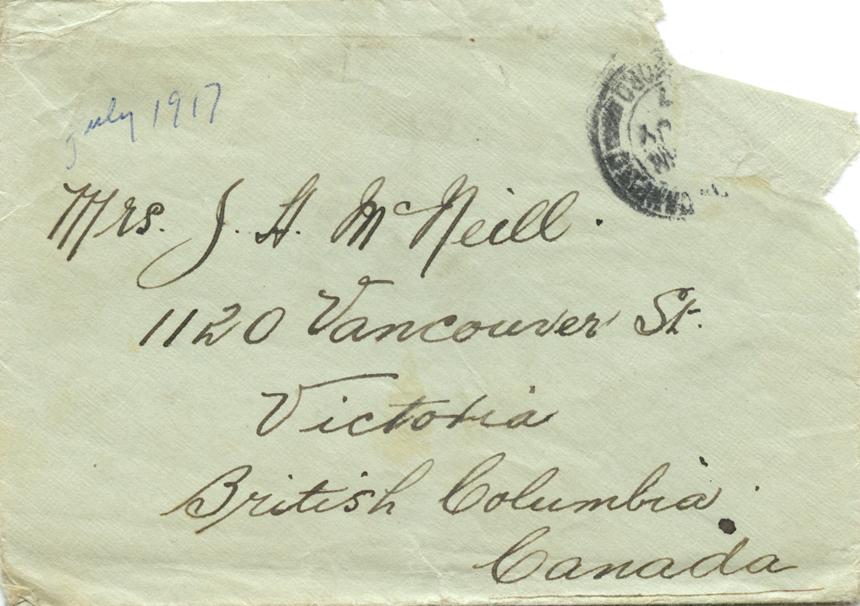 July 1917
Mrs. J. A. McNeill.
1120 Vancouver St.
Victoria
British Columbia
Canada